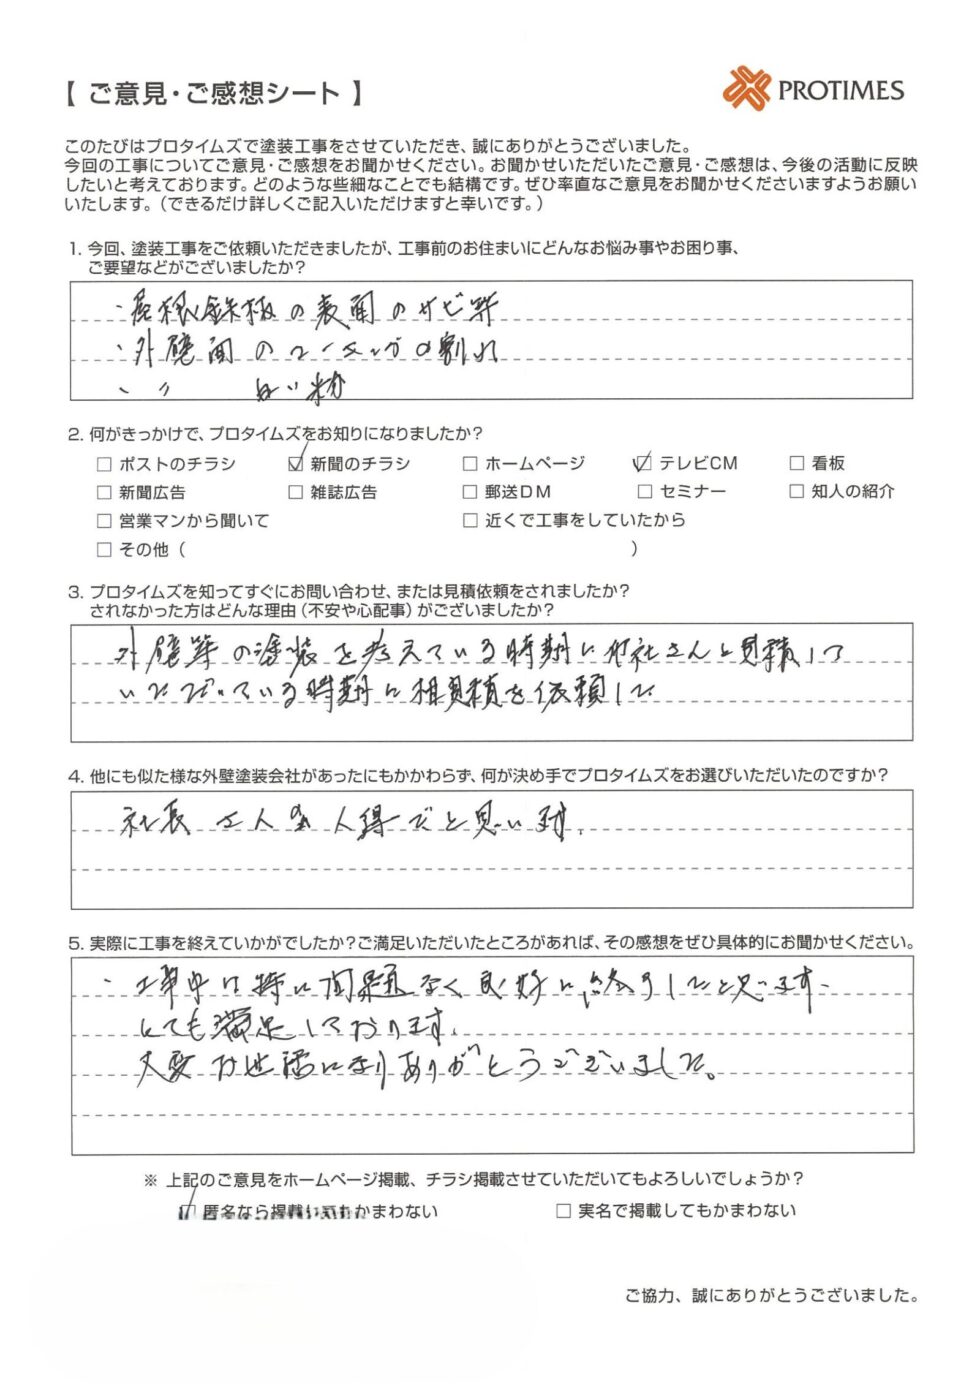 【 ご意見・ご感想シート 】
PROTIMES
このたびはプロタイムズで塗装工事をさせていただき、誠にありがとうございました。
今回の工事についてご意見・ご感想をお聞かせください。お聞かせいただいたご意見・ご感想は、今後の活動に反映
したいと考えております。どのような些細なことでも結構です。ぜひ率直なご意見をお聞かせくださいますようお願い
いたします。（できるだけ詳しくご記入いただけますと幸いです。）
1. 今回、塗装工事をご依頼いただきましたが、工事前のお住まいにどんなお悩み事やお困り事、
ご要望などがございましたか？
・屋根鉄板の表面のサビ等
・外壁面のコーキングの割れ
・ 〃 白い粉
2. 何がきっかけで、プロタイムズをお知りになりましたか？
□ ポストのチラシ ☑ 新聞のチラシ □ ホームページ ☑ テレビCM □ 看板
□ 新聞広告 □ 雑誌広告 □ 郵送DM □ セミナー □ 知人の紹介
□ 営業マンから聞いて □ 近くで工事をしていたから
□ その他（ ）
3. プロタイムズを知ってすぐにお問い合わせ、または見積依頼をされましたか？
されなかった方はどんな理由（不安や心配事）がございましたか？
外壁等の塗装を考えている時期に他社さんと見積して
いただいている時期に相見積を依頼した
4. 他にも似た様な外壁塗装会社があったにもかかわらず、何が決め手でプロタイムズをお選びいただいたのですか？
社長 人 の 人 だと思います。
5. 実際に工事を終えていかがでしたか？ご満足いただいたところがあれば、その感想をぜひ具体的にお聞かせください。
・工事中は特に問題なく良好に終了したと思います。
とても満足しております。
大変お世話になりありがとうございました。
※ 上記のご意見をホームページ掲載、チラシ掲載させていただいてもよろしいでしょうか？
☑ 匿名なら掲載してもかまわない □ 実名で掲載してもかまわない
ご協力、誠にありがとうございました。